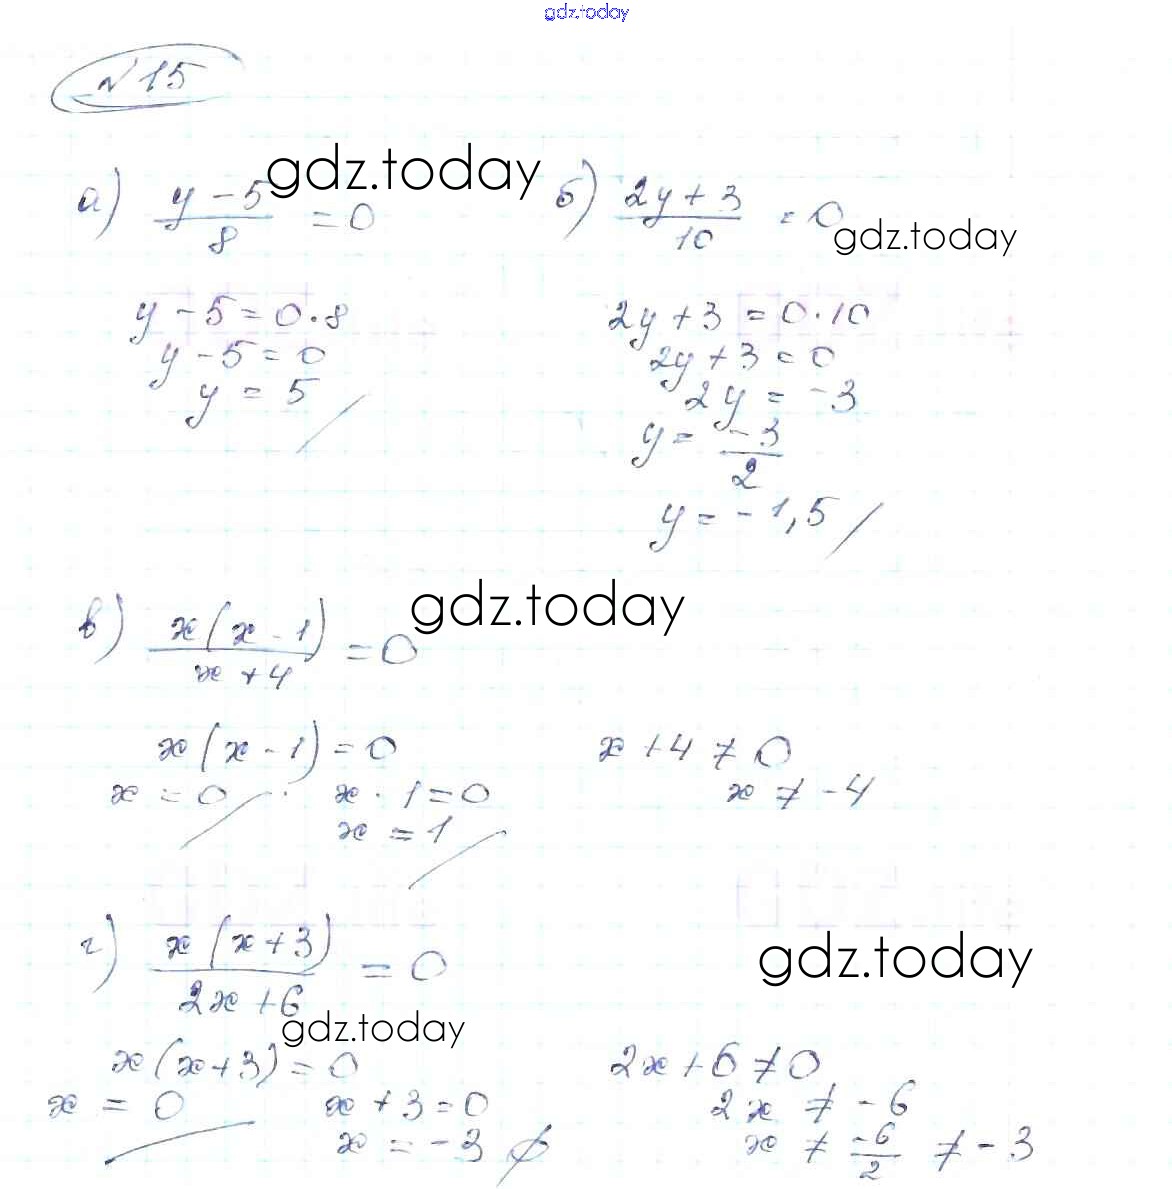 gdz.today
№15
а) (y-5)/8 = 0
gdz.today
б) (2y+3)/10 = 0
gdz.today
y-5=0·8
y-5=0
y=5
2y+3=0·10
2y+3=0
2y=-3
y=-3/2
y=-1,5
в) x(x-1)/(x+4) = 0
gdz.today
x(x-1)=0
x=0
x-1=0
x=1
x+4≠0
x≠-4
г) x(x+3)/(2x+6) = 0
gdz.today
gdz.today
x(x+3)=0
x=0
x+3=0
x=-3 ∅
2x+6≠0
2x≠-6
x≠-6/2≠-3